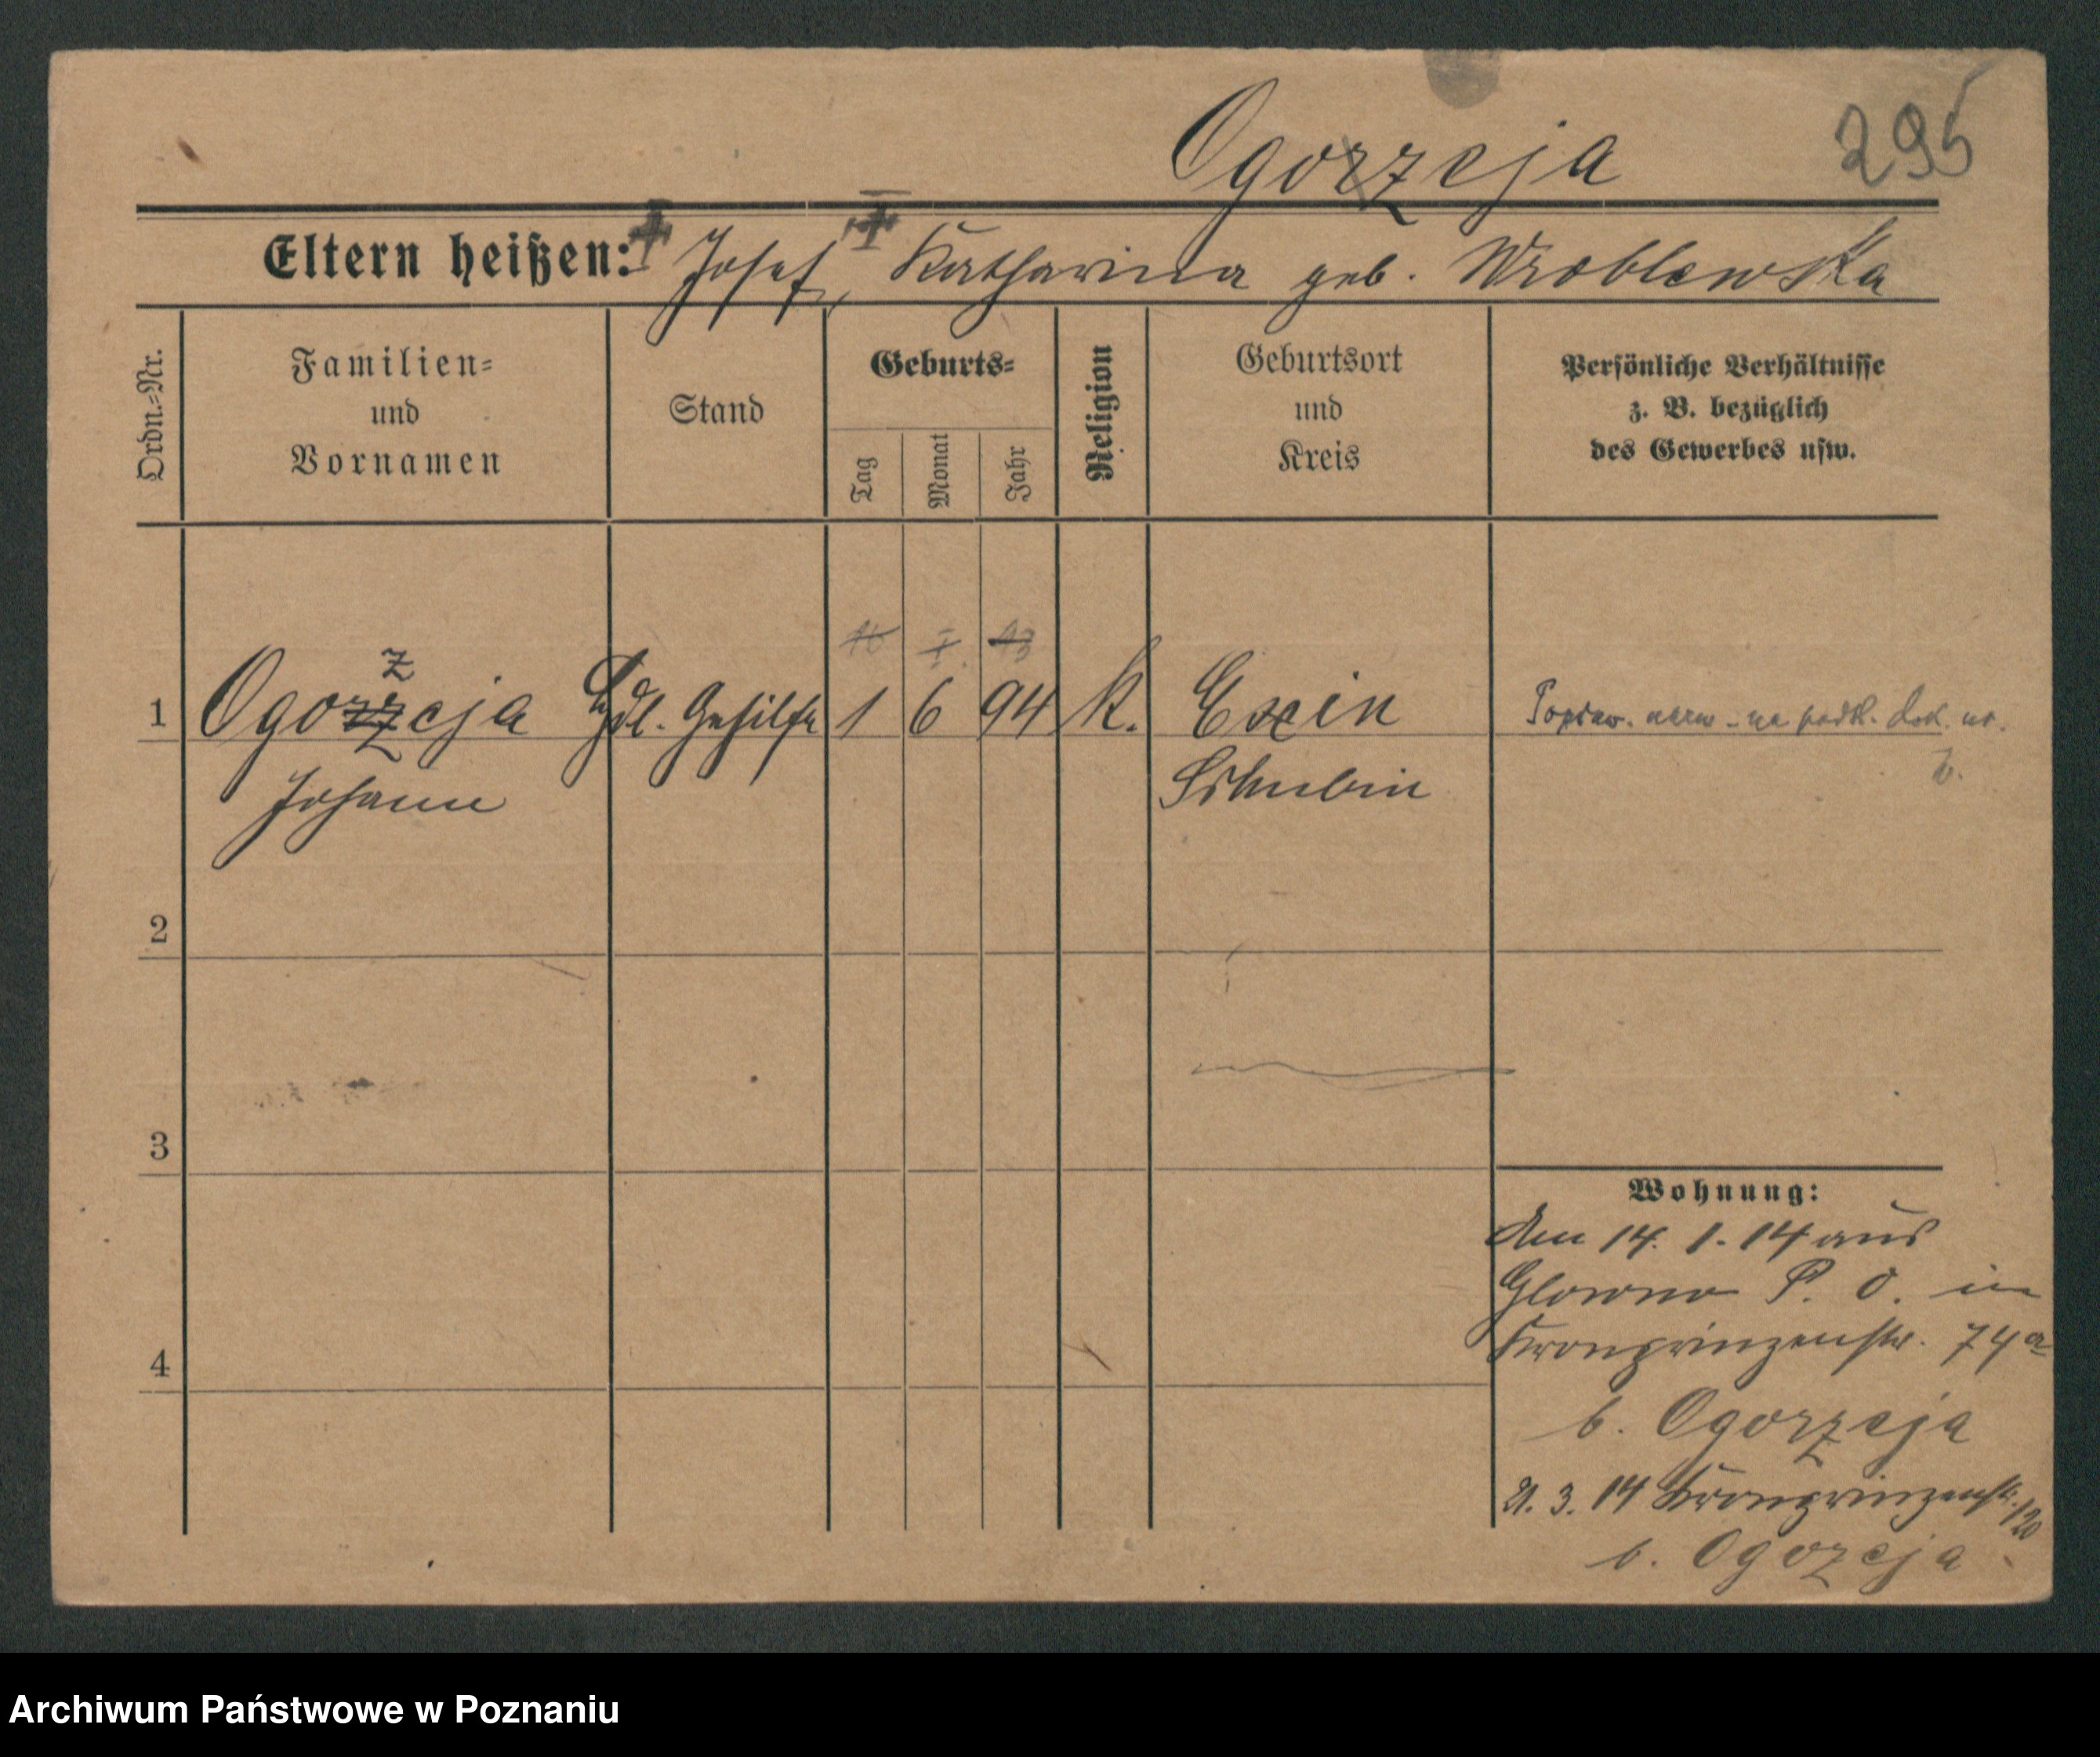 Ogorzeja
295
Eltern heißen: Josef, Katharina geb. Wroblewska
Ordn.-Nr.
Familien-
und
Vornamen
Stand
Geburts-
Tag
Monat
Jahr
Religion
Geburtsort
und
Kreis
Persönliche Verhältnisse
z. B. bezüglich
des Gewerbes usw.
z
1 Ogorzeja Hdl. Gehilfe 1 6 94 K. Exin
Johann Schubin
Popraw. nazw. na podst. dok. ur.
2
3
4
Wohnung:
Den 14. 1. 14 aus
Glowno P. O. in
Kronprinzenstr. 74a
b. Ogorzeja
21. 3. 14 Kronprinzenstr. 120
b. Ogozeja
Archiwum Państwowe w Poznaniu